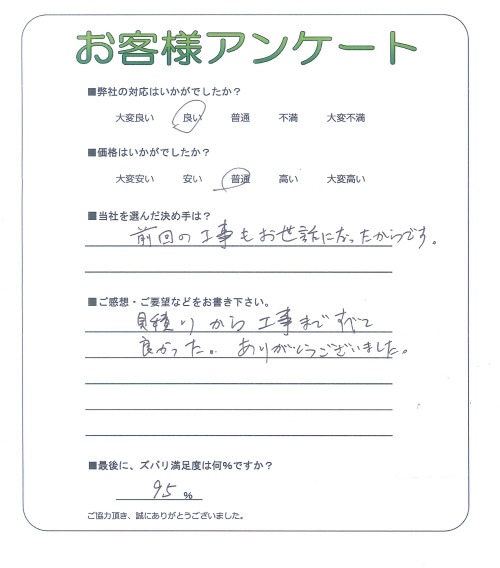 お客様アンケート
■弊社の対応はいかがでしたか？
大変良い 良い 普通 不満 大変不満
■価格はいかがでしたか？
大変安い 安い 普通 高い 大変高い
■当社を選んだ決め手は？
前回の工事もお世話になったからです。
■ご感想・ご要望などをお書き下さい。
見積りから工事まですべて
良かった。ありがとうございました。
■最後に、ズバリ満足度は何%ですか？
95 %
ご協力頂き、誠にありがとうございました。